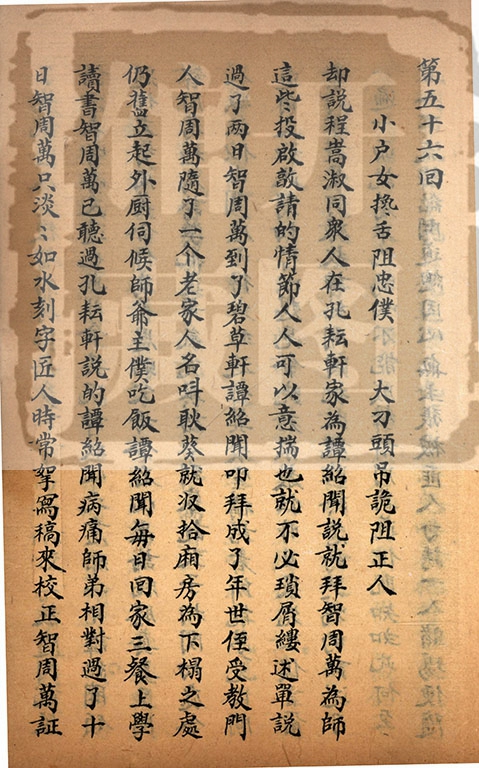 第五十六回
小户女攙舌阻忠僕 大刁頭吊詭阻正人
却説程嵩淑同衆人在孔耘軒家為譚紹聞説就拜智周萬為師
這些投啟敦請的情節人人可以意揣也就不必瑣屑縷述單説
過了兩日智周萬到了碧草軒譚紹聞叩拜成了年世侄受教門
人智周萬隨了一个老家人名呌耿葵就収拾廂房為下榻之處
仍舊立起外厨伺候師爺主僕吃飯譚紹聞每日回家三餐上學
讀書智周萬已聽過孔耘軒説的譚紹聞病痛師弟相對過了十
日智周萬只淡〻如水刻字匠人時常拏寫稿來校正智周萬証